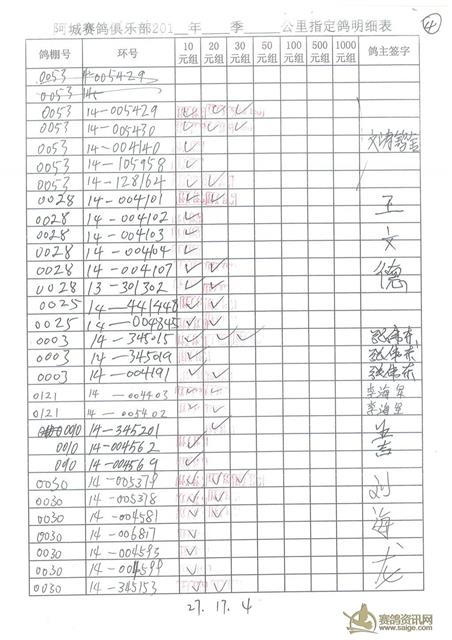 阿城赛鸽俱乐部201__年____季______公里指定鸽明细表 ④
鸽棚号 环号 10元组 20元组 30元组 50元组 100元组 300元组 500元组 1000元组 鸽主签字
0053 14-005429
0053 14
0053 14-005429 ✓ ✓ ✓
0053 14-005430 ✓ ✓ ✓
0053 14-004140 ✓
0053 14-105958 ✓
0053 14-128164 ✓ ✓
0028 14-004101 ✓ ✓ 王
0028 14-004102 ✓
0028 14-004103 ✓ 文
0028 14-004104 ✓
0028 14-004107 ✓ ✓ 德
0028 13-301302 ✓ ✓
0025 14-441448 ✓ ✓
0025 14-004845 ✓ ✓
0003 14-345015 ✓ ✓ ✓
0003 14-345019 ✓ ✓
0003 14-004191 ✓ ✓
0121 14-004403 ✓ ✓ 李海军
0121 14-005402 ✓ 李海军
0090 14-345201 ✓
0090 14-004562 ✓ 吉
090 14-004569 ✓
0030 14-005379 ✓ ✓ ✓ 刘
0030 14-005378 ✓ ✓
0030 14-004581 ✓ ✓ 海
0030 14-006817 ✓
0030 14-004593 ✓
0030 14-004599 ✓ 龙
0030 14-345153 ✓ ✓
27. 17. 4
赛鸽资讯网
www.saige.com